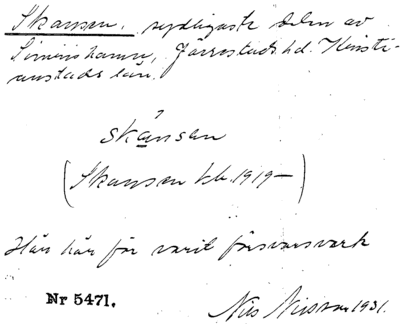 Skansen, sydligaste delen av
Simrishamn, Järrestads hd. Kristi-
anstads län.
skånsen
(Skansen kb. 1919—)
Här har för varit försvarsverk
Nr 5471.
Nils Nilsson 1931.